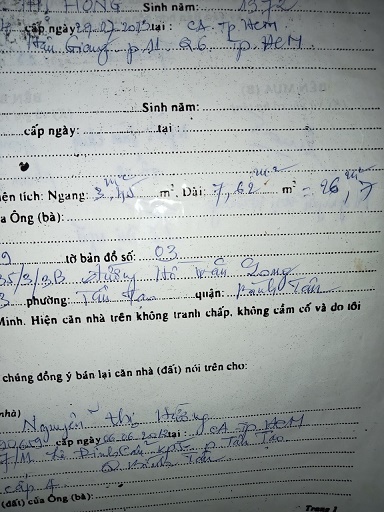 THỊ HỒNG Sinh năm: 1972
cấp ngày 29.07.2013 tại : CA Tp HCM
Hậu Giang p 11 Q6 Tp HCM
Sinh năm:
cấp ngày: tại :
iện tích: Ngang: 3,45 m². Dài: 7,62 m² = 26,7
a Ông (bà):
9 tờ bản đồ số: 03
35/3/3B đường Hồ Văn Long
3 phường: Tân Tạo quận: Bình Tân
Minh. Hiện căn nhà trên không tranh chấp, không cầm cố và do tôi
chúng đồng ý bán lại căn nhà (đất) nói trên cho:
nhà)
Nguyễn Thị Hường
cấp ngày 06.06.2012 tại : CA Tp HCM
7/11 Lê Đình Cẩn P Tân Tạo
Q Bình Tân
cấp 4
(đất) của Ông (bà):
Trang 1